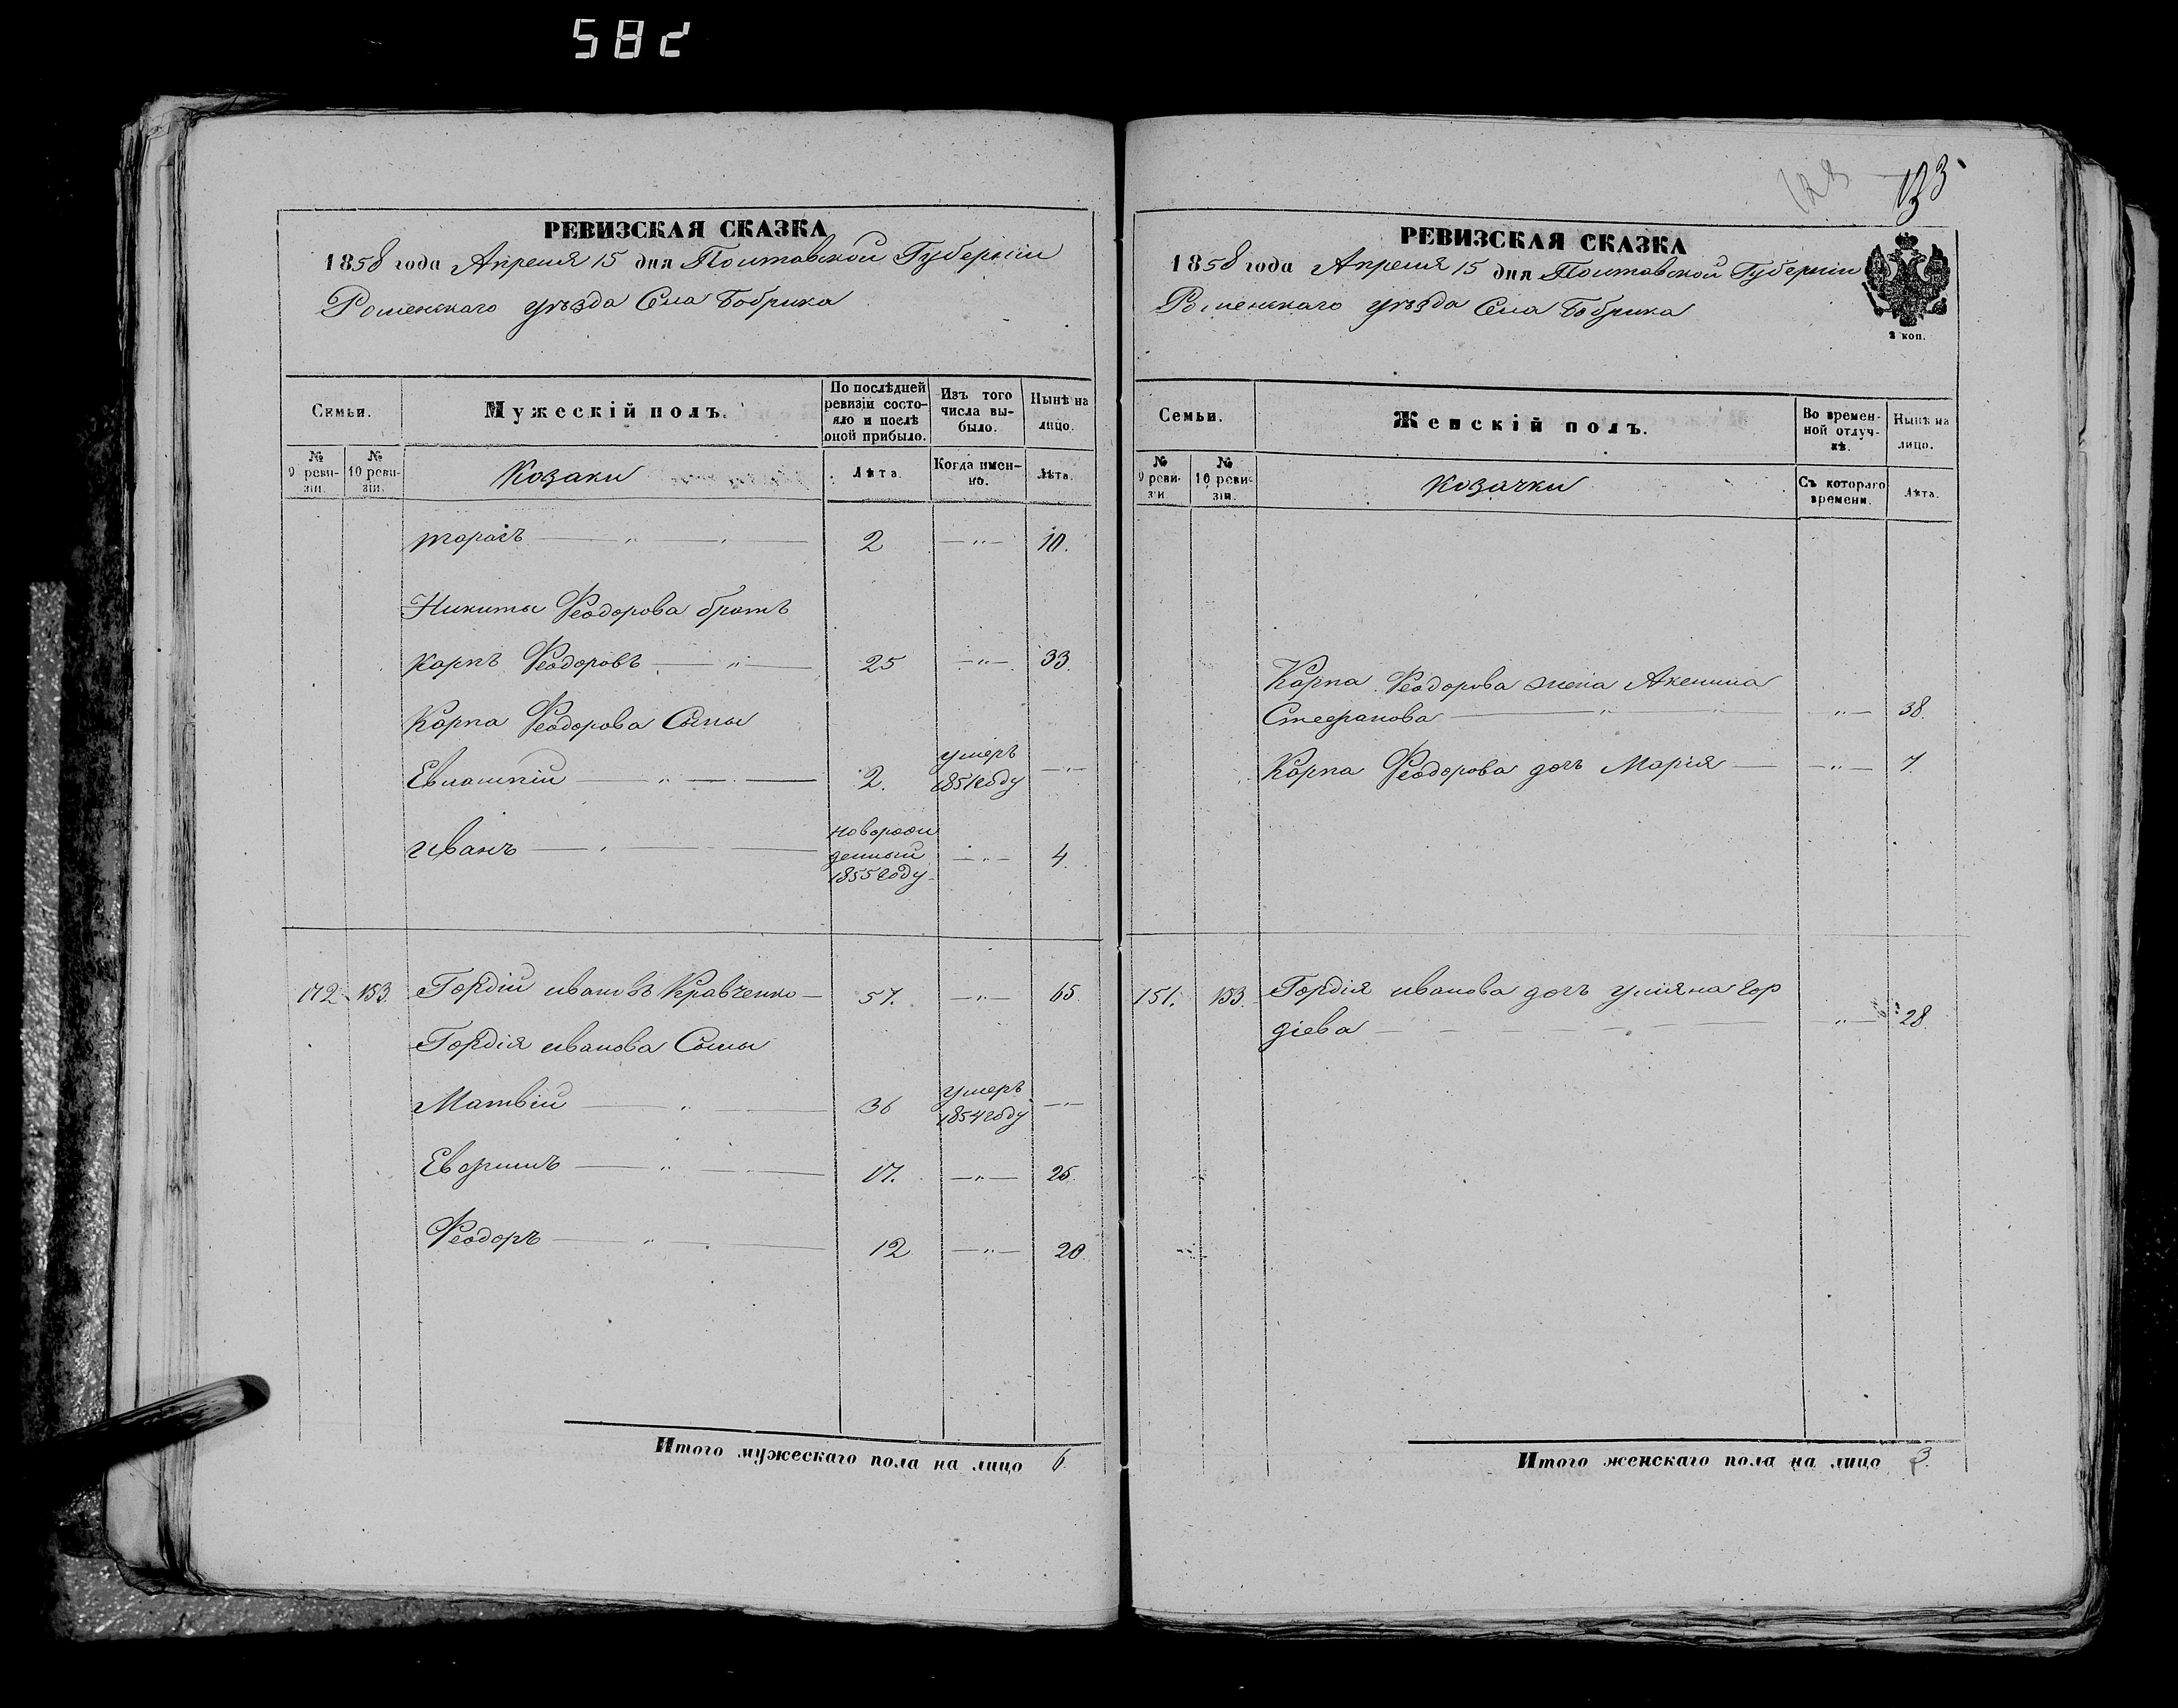 582
РЕВИЗСКАЯ СКАЗКА
1858 года Апреля 15 дня Полтавской Губернии
Роменскаго уѣзда Села Бобрика
Семьи.
Мужескій полъ.
По послѣдней ревизіи состояло и послѣ оной прибыло.
Изъ того числа вы-было.
Нынѣ на лицо.
№ 9 реви-зіи.
№ 10 реви-зіи.
Козаки
Лѣта.
Когда имен-но.
Лѣта.
2 —"— 10.
Никиты Феодорова братъ
Карпъ Феодоровъ — " — 25 —"— 33.
Карпа Феодорова Сыны
Евлампій — " — 2. умеръ 1851 году —"—
Иванъ — " — новорож денный 1855 году —"— 4.
172 153. Гордій Ивановъ Кравченко — 57. —"— 65
Гордія Иванова Сыны
Матвій — " — 36 умеръ 1854 году —"—
— " — 17. —"— 25.
Феодоръ — " — 12 —"— 20.
Итого мужескаго пола на лицо 6
128 133
РЕВИЗСКАЯ СКАЗКА
1858 года Апреля 15 дня Полтавской Губернии
Роменскаго уѣзда Села Бобрика
2 коп.
Семьи.
Женскій полъ.
Во времен-ной отлуч-кѣ.
Нынѣ на лицо.
№ 9 реви-зіи
№ 10 реви-зіи.
Козачки
Съ котораго времени.
Лѣта.
Карпа Феодорова жена Аксинia
Стефанова — " — —"— 38.
Карпа Феодорова дочь Марія — —"— 7.
151. 153. Гордія Иванова дочь Уліяна Гор
діева — —"— 28.
Итого женскаго пола на лицо 3.